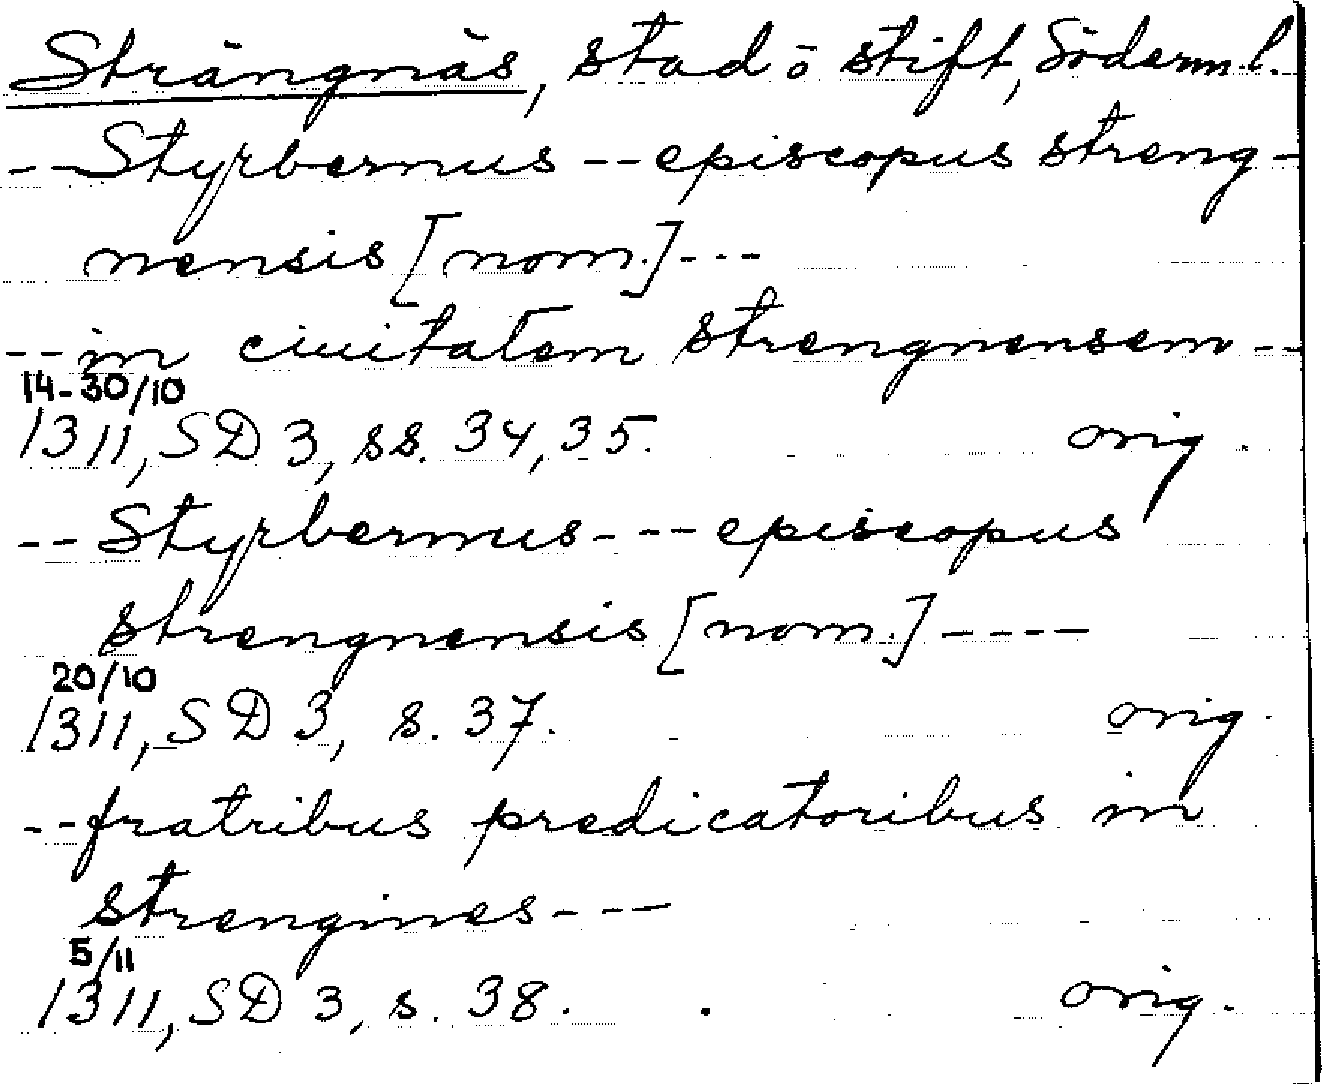 Strängnäs, stad o stift, Söderml.
--Styrbernus --episcopus streng-
nensis [nom.]---
--in ciuitatem strengnensem--
14-30/10
1311, SD 3, ss. 34, 35. orig.
--Styrbernus---episcopus
strengnensis [nom.]----
20/10
1311, SD 3, s. 37. orig.
--fratribus predicatoribus in
strengines---
5/11
1311, SD 3, s. 38. orig.